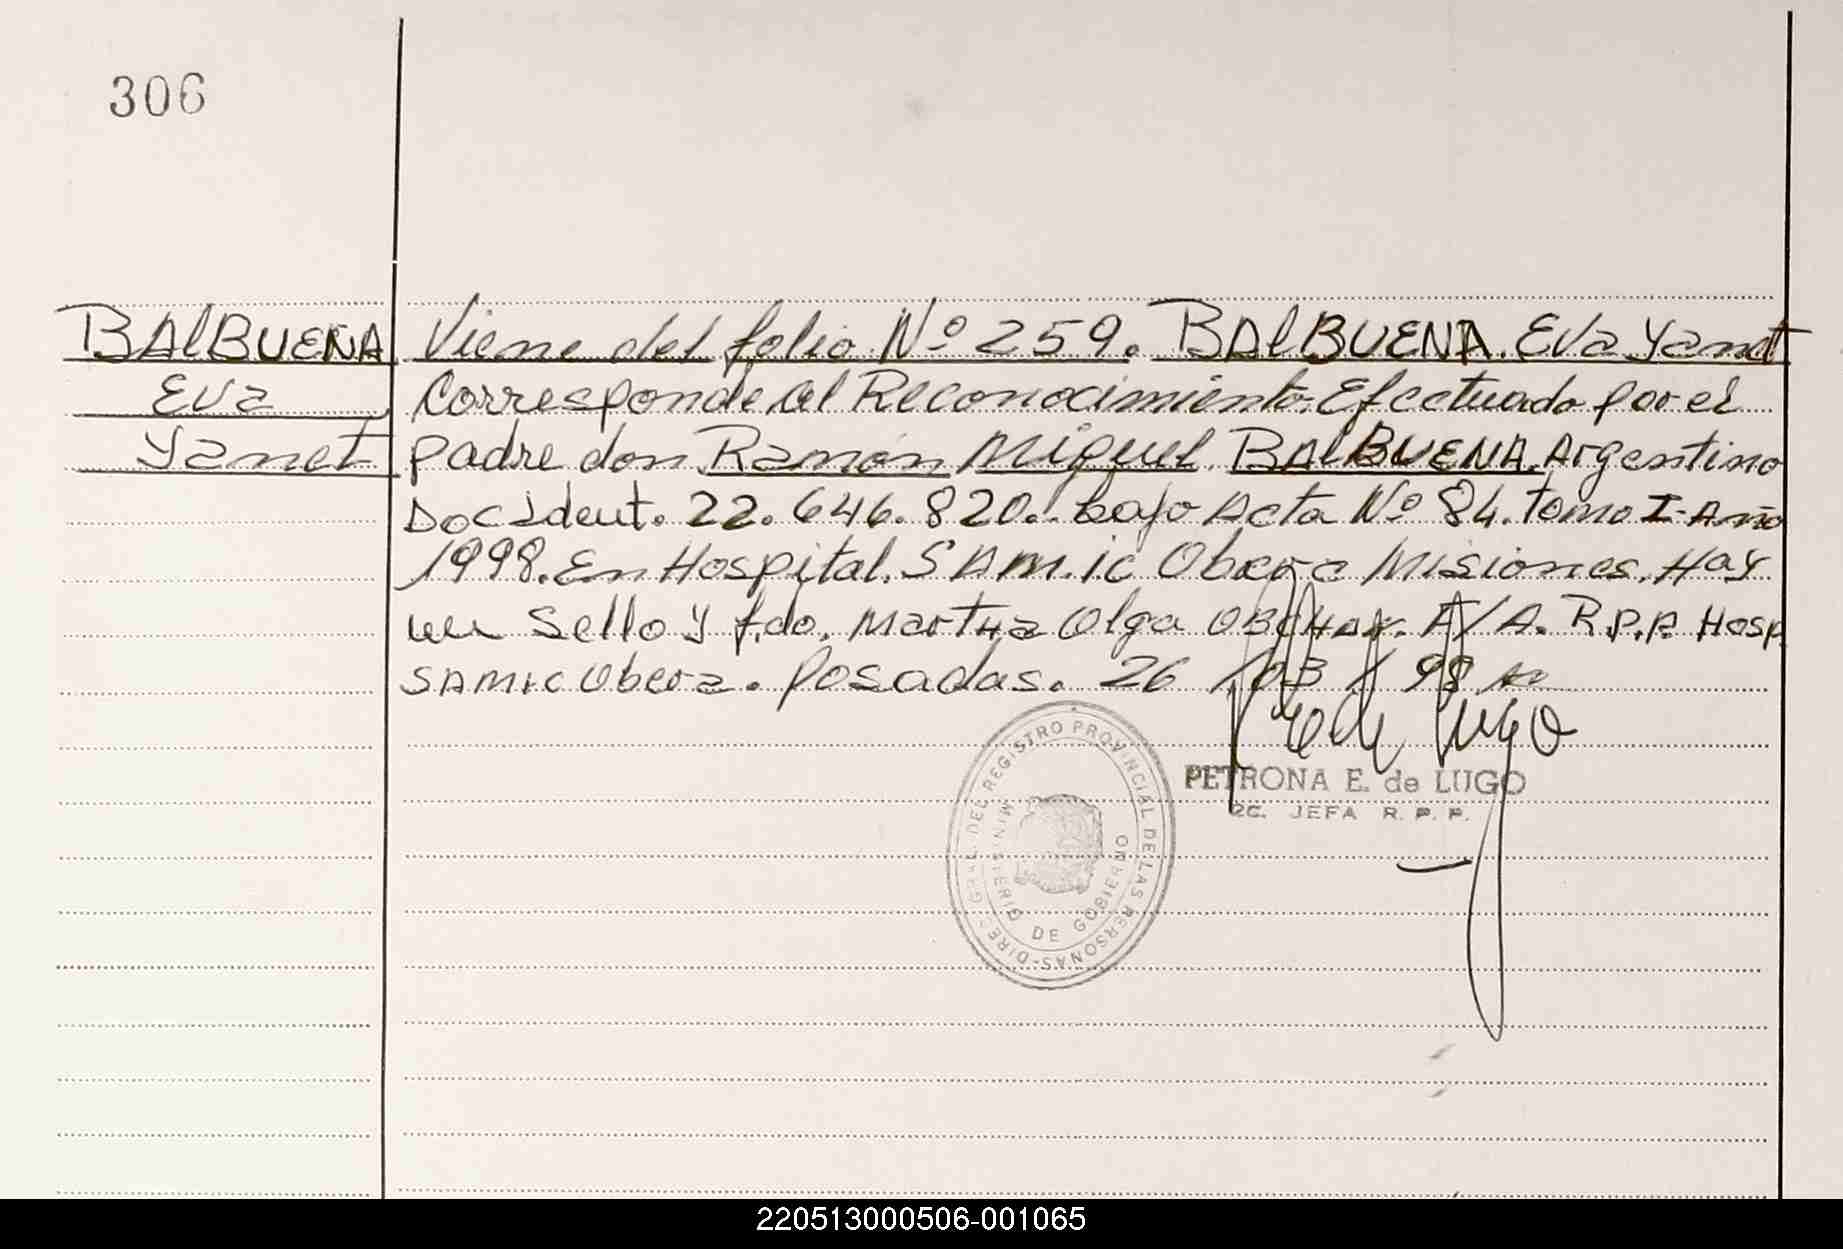 306
BAlBUENA
Eva
Yanet
Viene del folio Nº 259. BAlBUENA. Eva Yanet
Corresponde al Reconocimiento Efectuado por el
padre don Ramón Miguel BAlBUENA. Argentino
Doc Ident. 22.646.820. bajo Acta Nº 84. tomo I- Año
1998. En Hospital. SAM.ic Obera Misiones. Hay
un Sello y f.do. Martha Olga A/A. R.P.P. Hosp.
SAMIC Obera. Posadas. 26 / 03 / 98
PETRONA E. de LUGO
2C. JEFA R. P. P.
DIREC. GRAL. DEL REGISTRO PROVINCIAL DE LAS PERSONAS-
MINISTERIO DE GOBIERNO
220513000506-001065